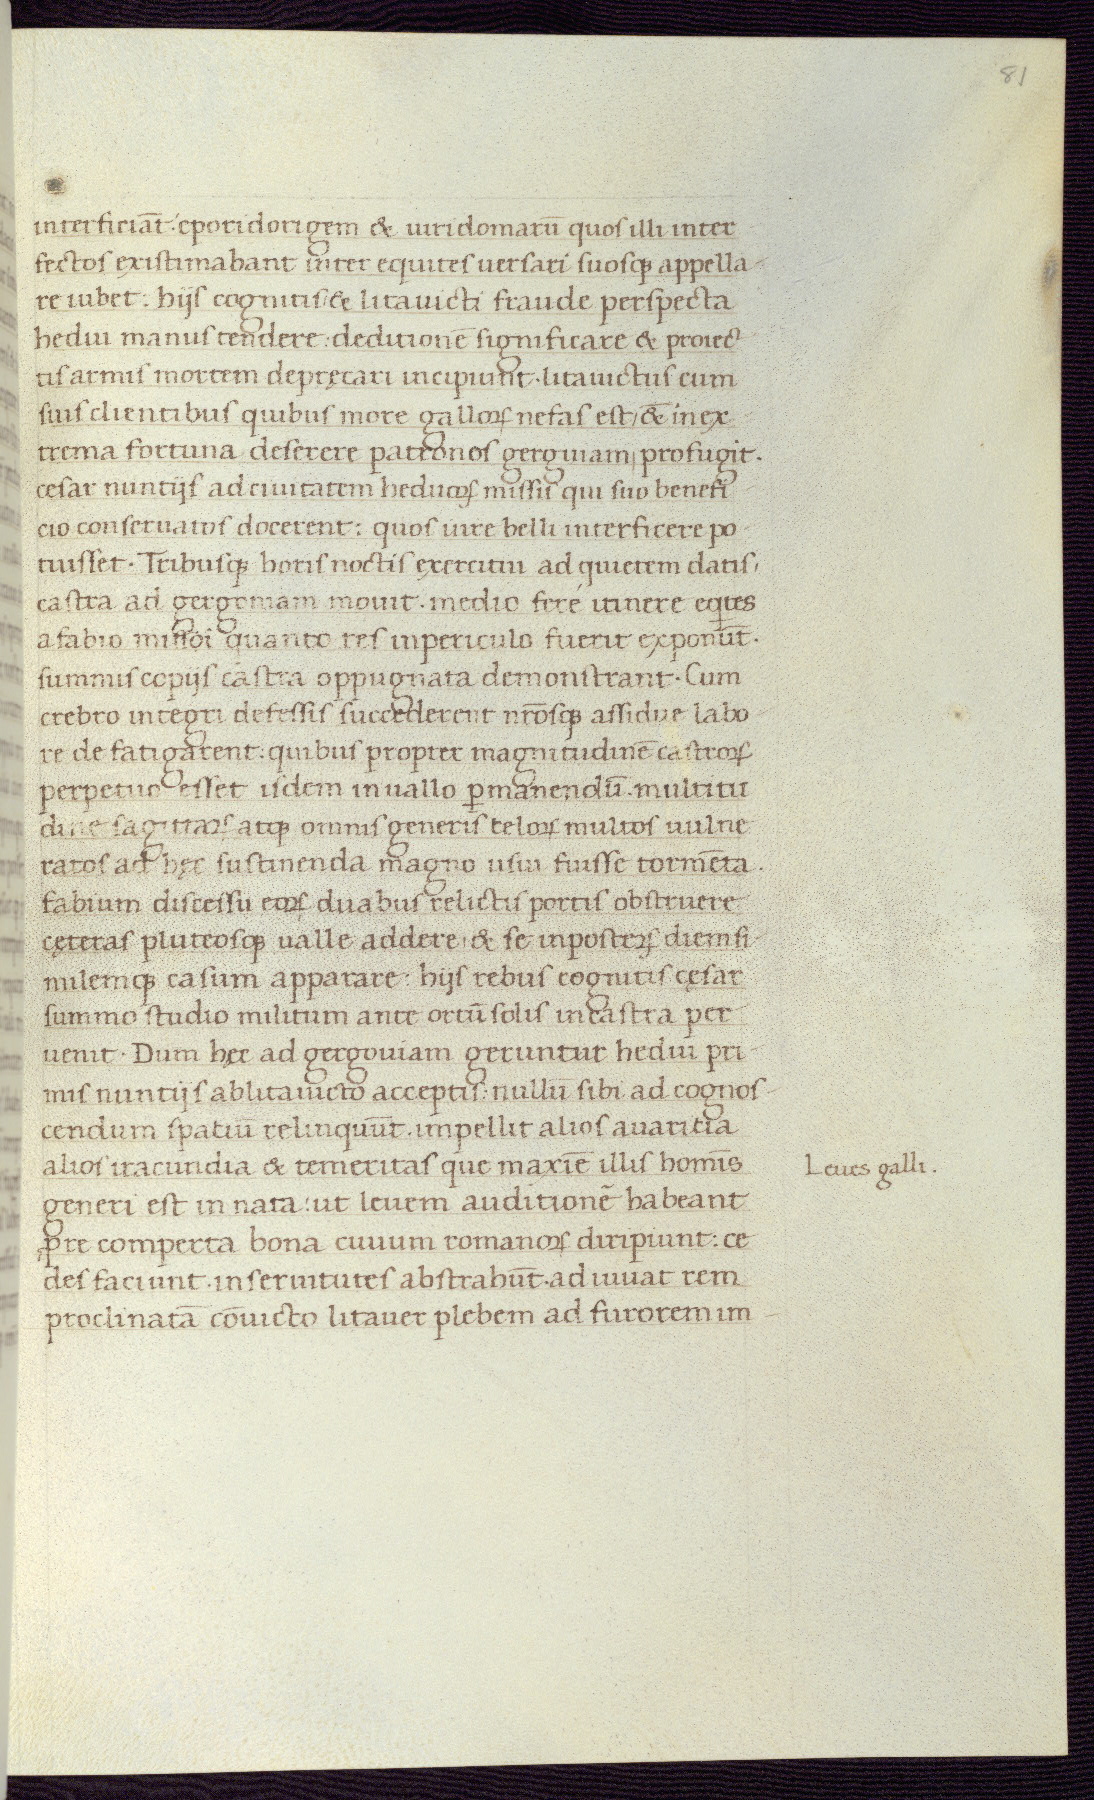 81
interficiāt. eporidorigem & uiridomarū quos illi inter
fectos existimabant inter equites uersari suosq; appella-
re iubet: hijs cognitis & litauicti fraude perspecta
hedui manus tendere: deditionē significare & proiec-
tis armis mortem deprecari incipiunt. litauictus cum
suis clientibus quibus more galloꝝ nefas est / & in ex
trema fortuna deserere patronos gerguiam profugit.
cesar nuntijs ad ciuitatem heduoꝝ missis qui suo benefi
cio conseruatos docerent: quos iure belli interficere po-
tuisset. Tribusq; horis noctis exercitui ad quietem datis,
castra ad gergouiam mouit. medio feré itinere eqtes
a fabio missi quanto res in periculo fuerit exponūt.
summis copijs castra oppugnata demonstrant. Cum
crebro integri defessis succederent nrōsq; assidue labo-
re de fatigarent: quibus propter magnitudinē castroꝝ
perpetuo esset isdem in uallo ꝑmanendū. multitu
dine sagittaꝝ atq; omnis generis teloꝝ multos uulne
ratos ad hęc sustinenda magno usui fuisse tormēta.
fabium discessu eoꝝ duabus relictis portis obstruere
cęteras pluteosq; ualle addere & se in posteꝝ diem si
milemq; casum apparare: hijs rebus cognitis cęsar
summo studio militum ante ortū solis in castra per
uenit. Dum hęc ad gergouiam geruntur hedui pri-
mis nuntijs ab litauicto acceptis: nullū sibi ad cognos-
cendum spatiū relinquūt. impellit alios auaritia
alios iracundia & temeritas que maxīe illis homīs
generi est in nata: ut leuem auditionē habeant
pre comperta bona ciuium romanoꝝ diripiunt: ce
des faciunt. in seruitutes abstrahūt. ad iuuat rem
proclinatā cōuicto litauer plebem ad furorem im-
Leues galli.